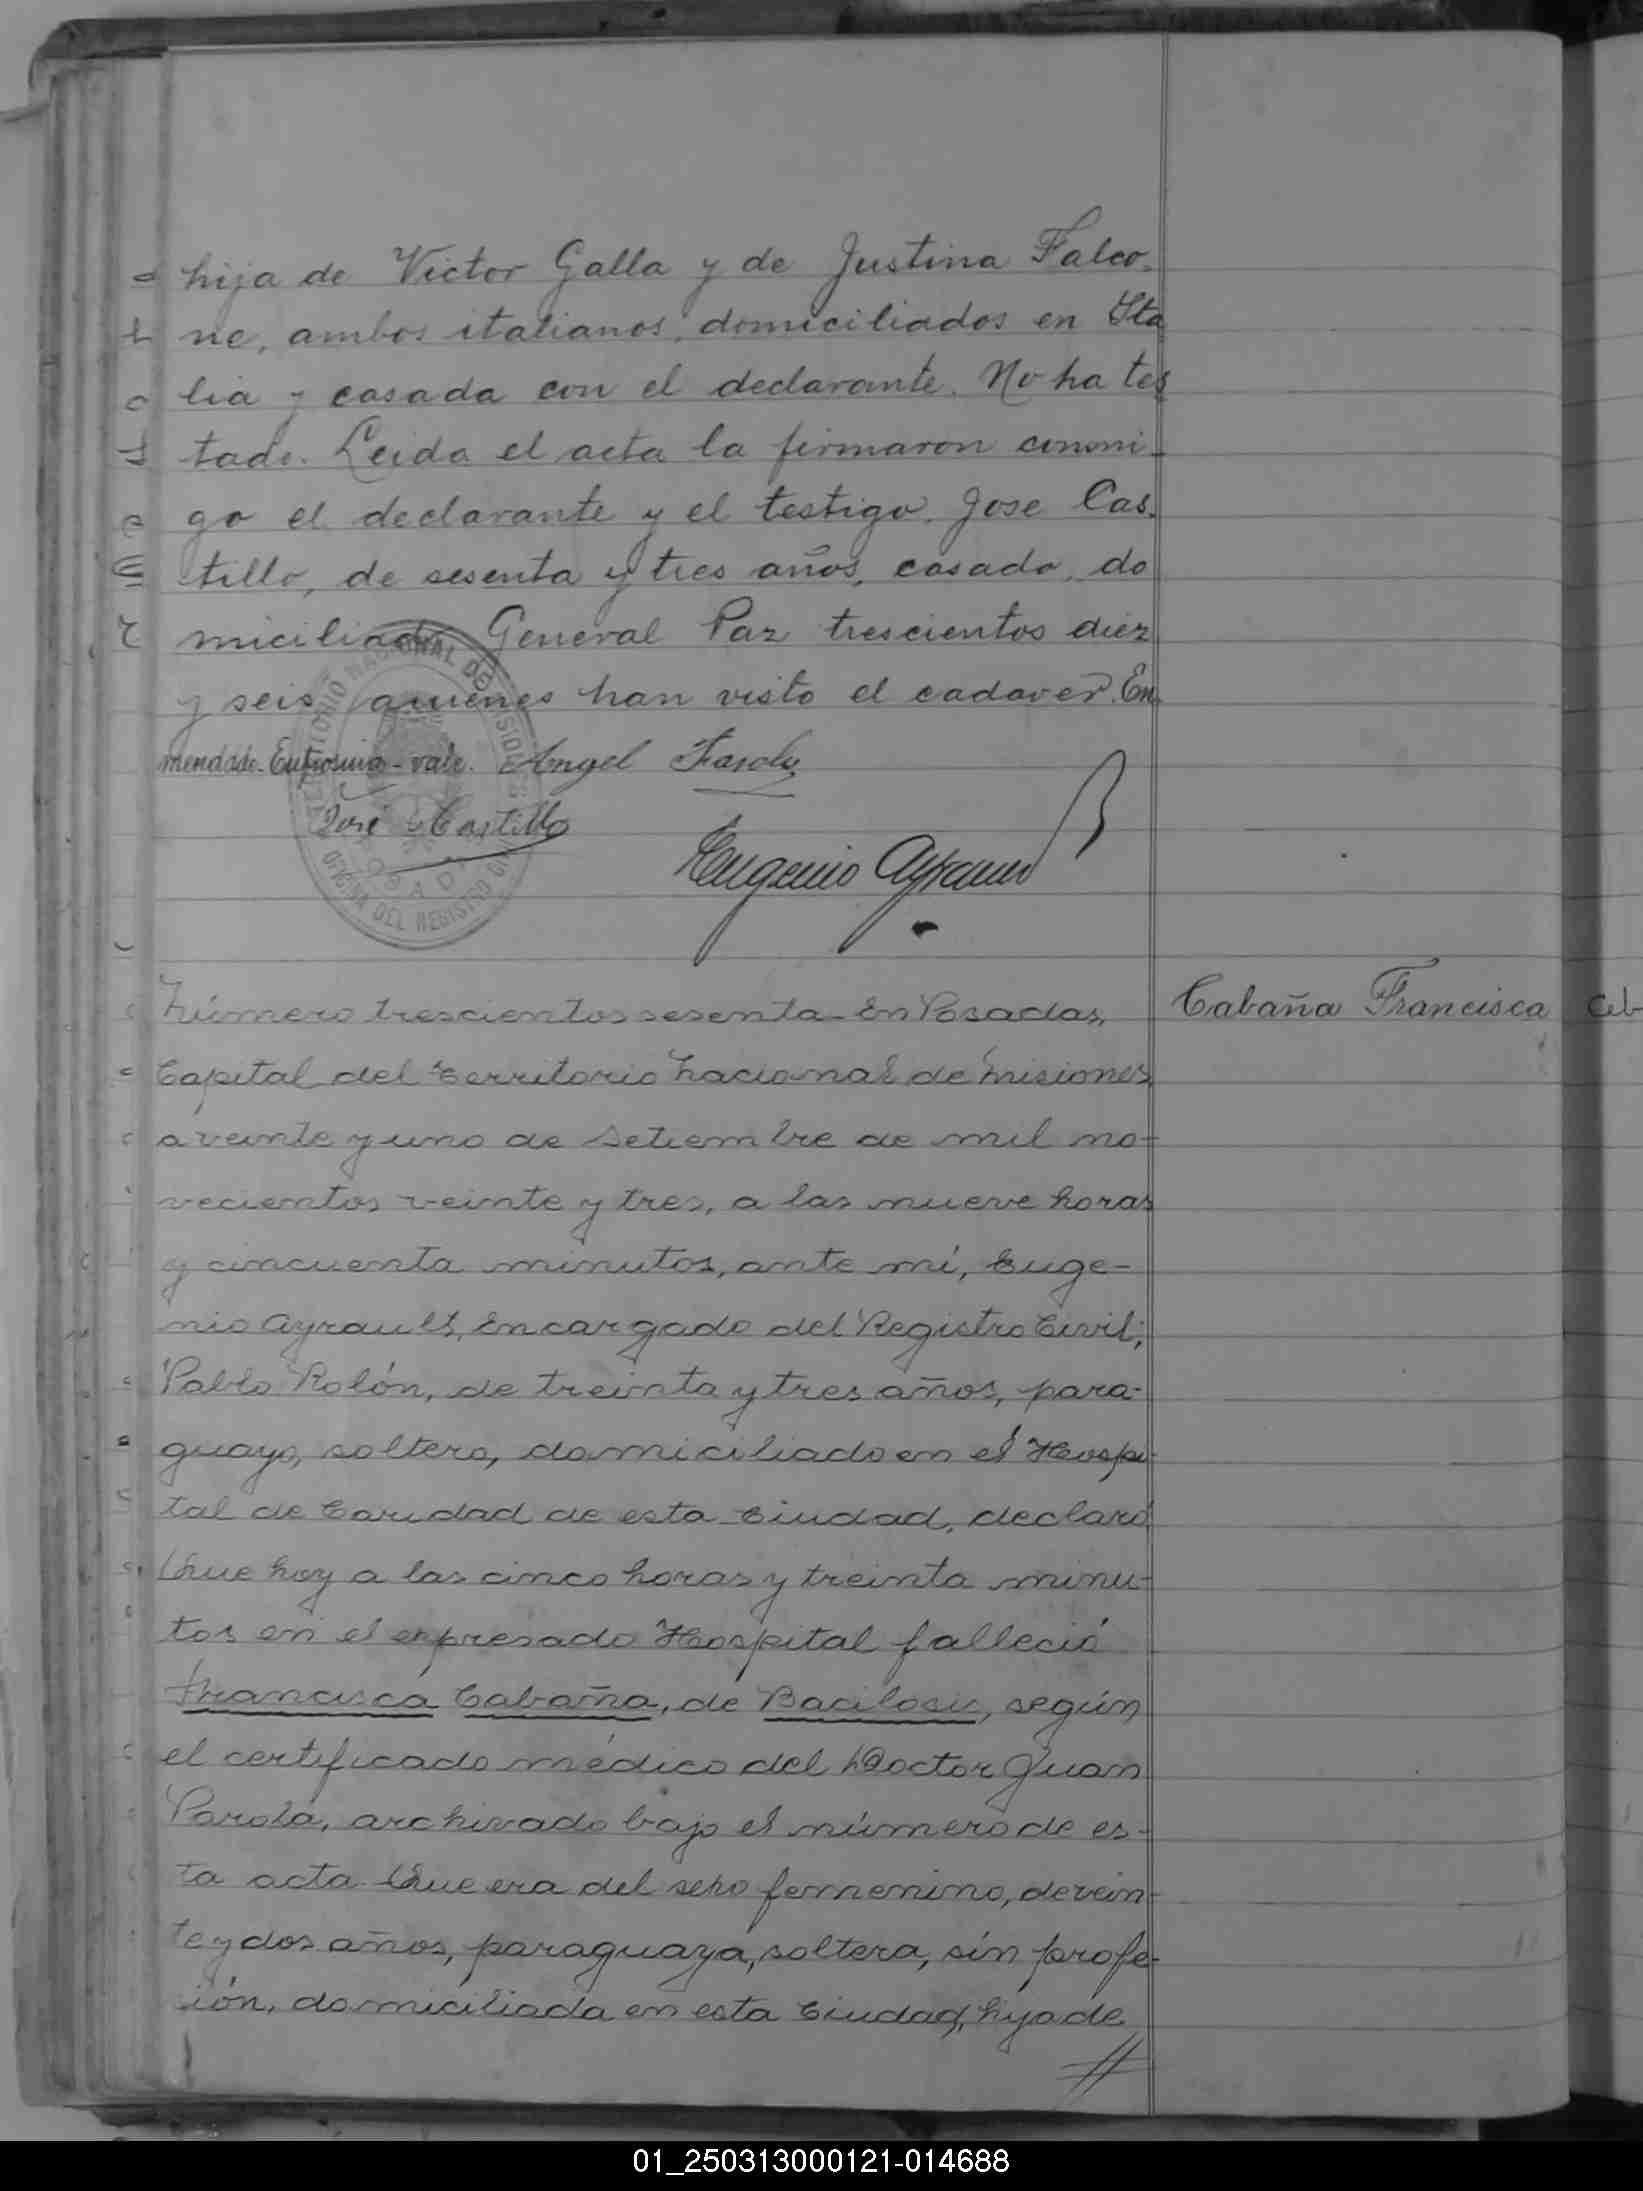 hija de Victor Galla y de Justina Falco-
ne, ambos italianos, domiciliados en Ita
lia y casada con el declarante. No ha tes
tado. Leida el acta la firmaron conmi-
go el declarante y el testigo. Jose Cas-
tillo, de sesenta y tres años, casado, do
miciliado General Paz trescientos diez
y seis, quienes han visto el cadaver. En
mendado - Eufrosina - vale. Angel
José Castillo
Eugenio Ayrault
TERRITORIO NACIONAL DE MISIONES
POSADAS
OFICINA DEL REGISTRO CIVIL
Número trescientos sesenta - En Posadas,
Cabaña Francisca
Capital del Territorio Nacional de Misiones
a veinte y uno de Setiembre de mil no-
vecientos veinte y tres, a las nueve horas
y cincuenta minutos, ante mí, Euge-
nio Ayrault, Encargado del Registro Civil;
Pablo Rolón, de treinta y tres años, para-
guayo, soltero, domiciliado en el Hospi-
tal de Caridad de esta Ciudad, declaró
Que hoy a las cinco horas y treinta minu-
tos en el expresado Hospital falleció
Francisca Cabaña, de Bacilosis, según
el certificado médico del Doctor Juan
Parola, archivado bajo el número de es-
ta acta Que era del sexo femenino, de vein-
te y dos años, paraguaya, soltera, sin profe-
sión, domiciliada en esta Ciudad, hija de
//
01_250313000121-014688